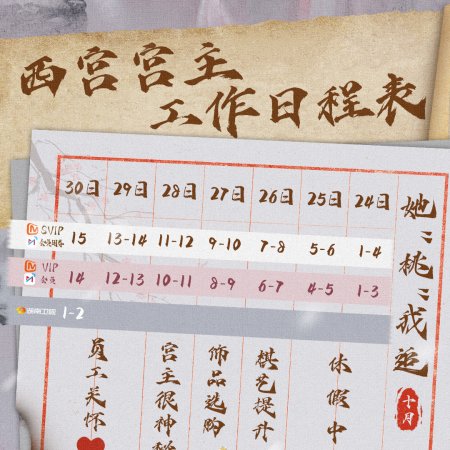 西宫宫主
工作日程表
30日 29日 28日 27日 26日 25日 24日
SVIP
会员用券
15 13-14 11-12 9-10 7-8 5-6 1-4
VIP
会员
14 12-13 10-11 8-9 6-7 4-5 1-3
湖南卫视 1-2
十月
休假中
棋艺提升
饰品选购
宫主很神秘
员工关怀